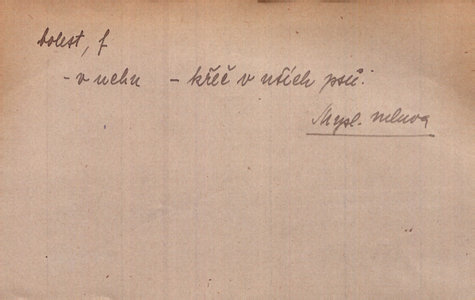 bolest, f
- v uchu - křeč v uších psů.
Mysl. mluva